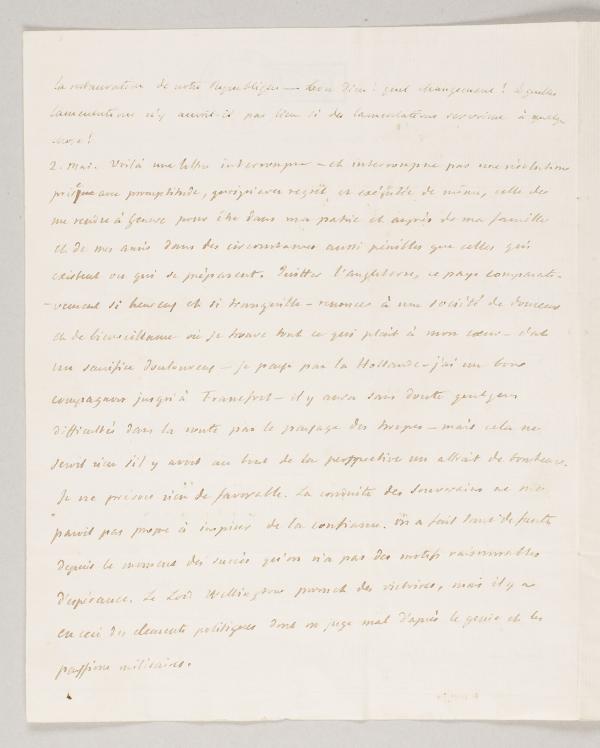 la restauration de notre République — bon Dieu! quel changement! & quelles
lamentations n'y auroit-il pas lieu si des lamentations servoient à quelque
chose!
2. Mai. Voilà une lettre interrompue — et interrompue par une résolution
prise avec promptitude, quoiqu'avec regret et exécutée de même, celle de
me rendre à Geneve pour être dans ma patrie et auprès de ma famille
et de mes amis dans des circonstances aussi pénibles que celles qui
existent ou qui se préparent. Quitter l'angleterre, ce pays comparati-
-vement si heureux et si tranquille — renoncer à une société de douceur
et de bienveillance où je trouve tout ce qui plait à mon cœur — c'est
un sacrifice douloureux — je passe par la Hollande — j'ai un bon
compagnon jusqu'à Francfort — il y aura sans doute quelques
difficultés dans la route par le passage des troupes — mais cela ne
seroit rien s'il y avoit au bout de la perspective un attrait de bonheur.
Je ne présage rien de favorable. La conduite des Souverains ne me
paroit pas propre à inspirer de la confiance. on a fait tant de fautes
depuis le moment des succès qu'on n'a pas des motifs raisonnables
d'espérance. Le Lord Wellington promet des victoires, mais il y a
en ceci des elements politiques dont on juge mal d'après le genie et les
passions militaires.